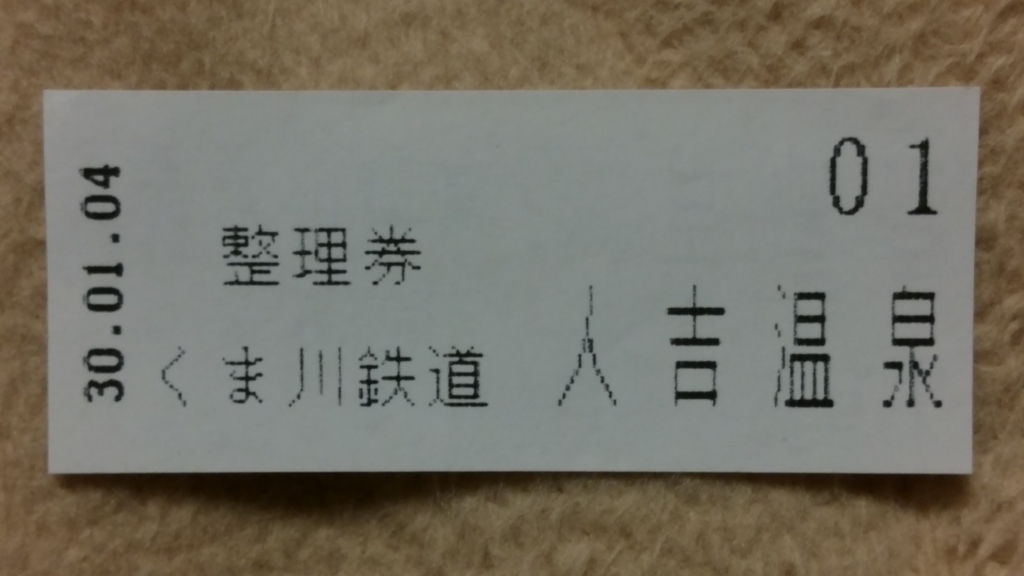 01
30.01.04
整理券
くま川鉄道
人吉温泉